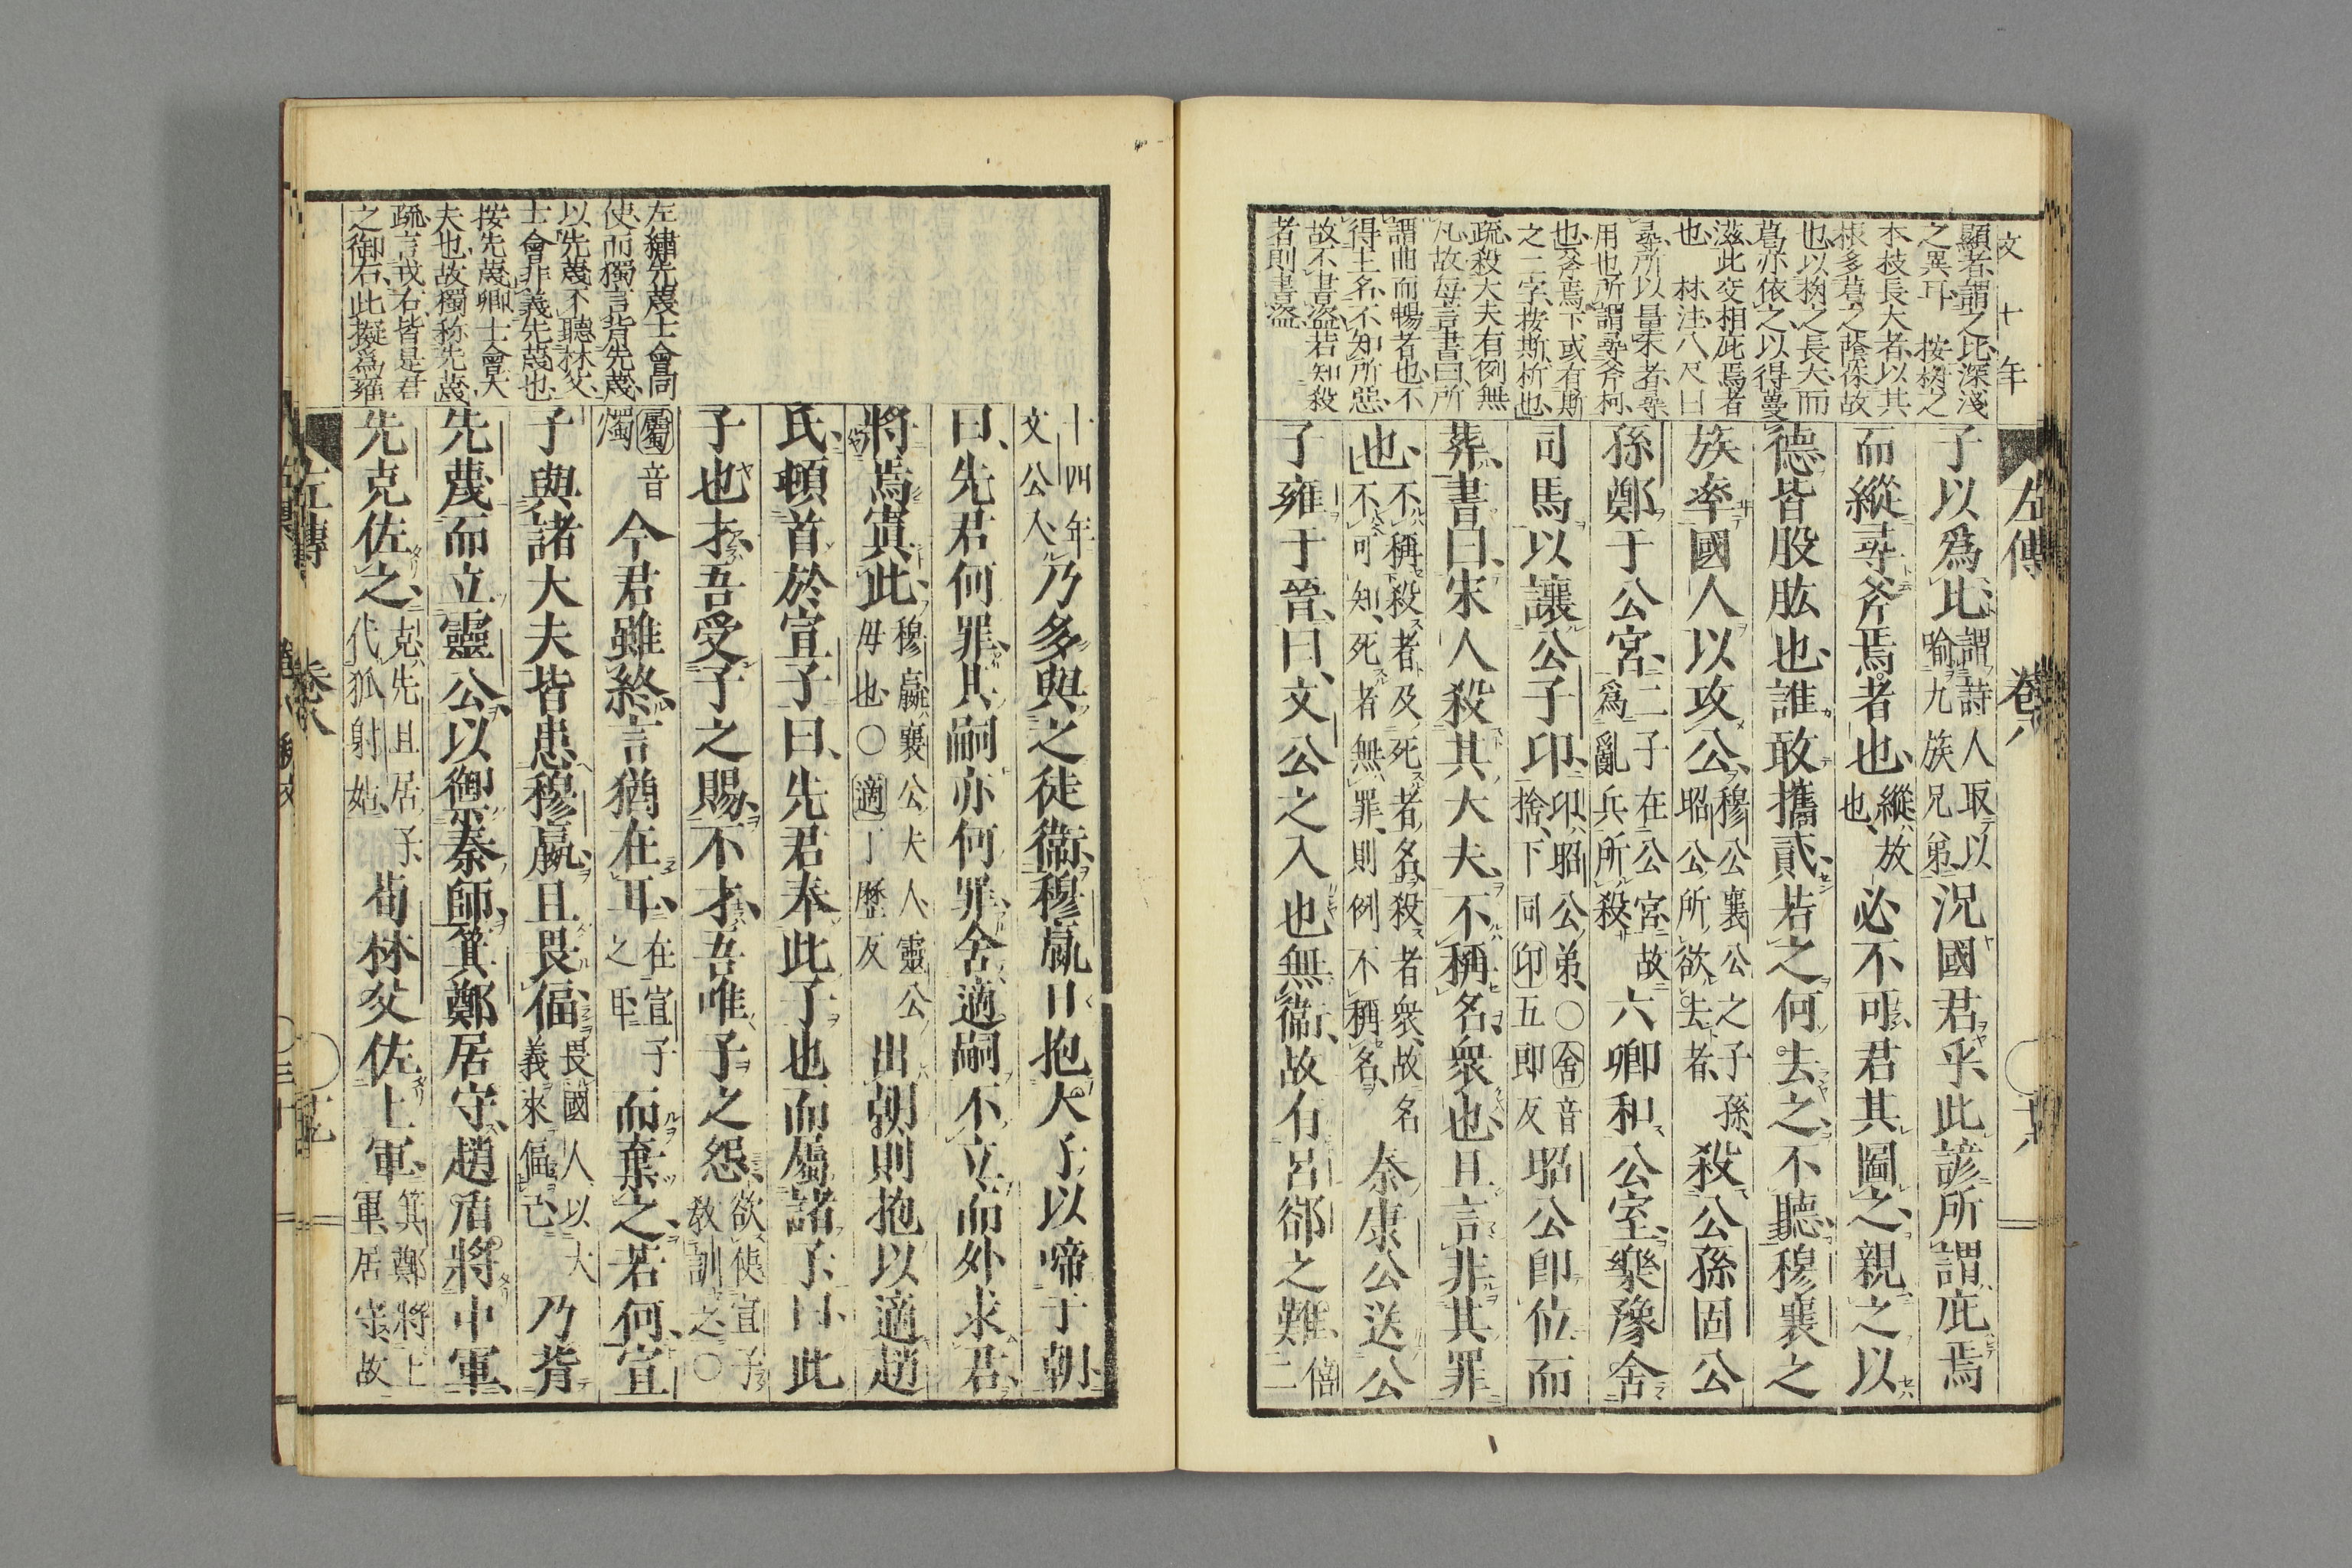 文 十 年
顯者、謂之比、深淺
之異耳、 按
本枝長大者、以其
根多葛之蔭㑒故
葛亦依之、以得蔓
滋、此交相庇焉者
也、 林注、八尺曰
尋、所以量木者、尋
用也、所謂尋斧柯、
也、斧焉下、或有斯
之二字、按斯、析也、
疏、殺大夫有例無
凡、故每言書曰、所
謂曲而暢者也、不
得主名、不知所惡、
故不書盜、若知殺
者、則書盜、
左傳 卷八
子以爲比、謂詩人取以喻九族兄弟、況國君乎、此諺所謂庇焉
而縱尋斧焉者也、縱、放也、必不可、君其圖之、親之以
德、皆股肱也、誰敢攜貳、若之何去之、不聽、穆襄之
族、率國人以攻公、穆公襄公之子孫、昭公所欲去者、殺公孫固公
孫鄭于公宮、二子在公宮、故爲亂兵所殺、六卿和公室、樂豫舍
司馬以讓公子卬、卬、昭公弟、○舍音捨、下同卬五郎反昭公卽位而
葬、書曰、宋人殺其大夫、不稱名、衆也、且言非其罪
也、不稱殺者及死者名、殺者衆、故名不可知、死者無罪、則例不稱名、秦康公送公
子雍于晉、曰、文公之入也無衞、故有呂郤之難、僖二
十四年文公入、乃多與之徒衞、穆嬴日抱大子以啼于朝、
曰、先君何罪、其嗣亦何罪、舍適嗣不立、而外求君、
將焉寘此、穆嬴、襄公夫人、靈公母也、○適丁歷反出朝、則抱以適趙
氏、頓首於宣子、曰、先君奉此子也、而屬諸子、曰、此
子也才、吾受子之賜、不才、吾唯子之怨、欲使宣子敎訓之、○
屬音燭今君雖終、言猶在耳、在宣子之耳而棄之、若何、宣
子與諸大夫皆患穆嬴、且畏偪、畏國人以大義來偪己乃背
先蔑而立靈公、以禦秦師、箕鄭居守、趙盾將中軍、
先克佐之、克、先且居子、代狐射姑、荀林父佐上軍、箕鄭將上軍、居守、故
左繡、先蔑士會同
使、而獨言背先蔑、
以先蔑不聽林父、
士會非義先蔑也、
按、先蔑卿、士會大
夫也、故獨稱先蔑、
疏、言戎右、皆是君
之御右、此擬爲雍
左傳 卷八